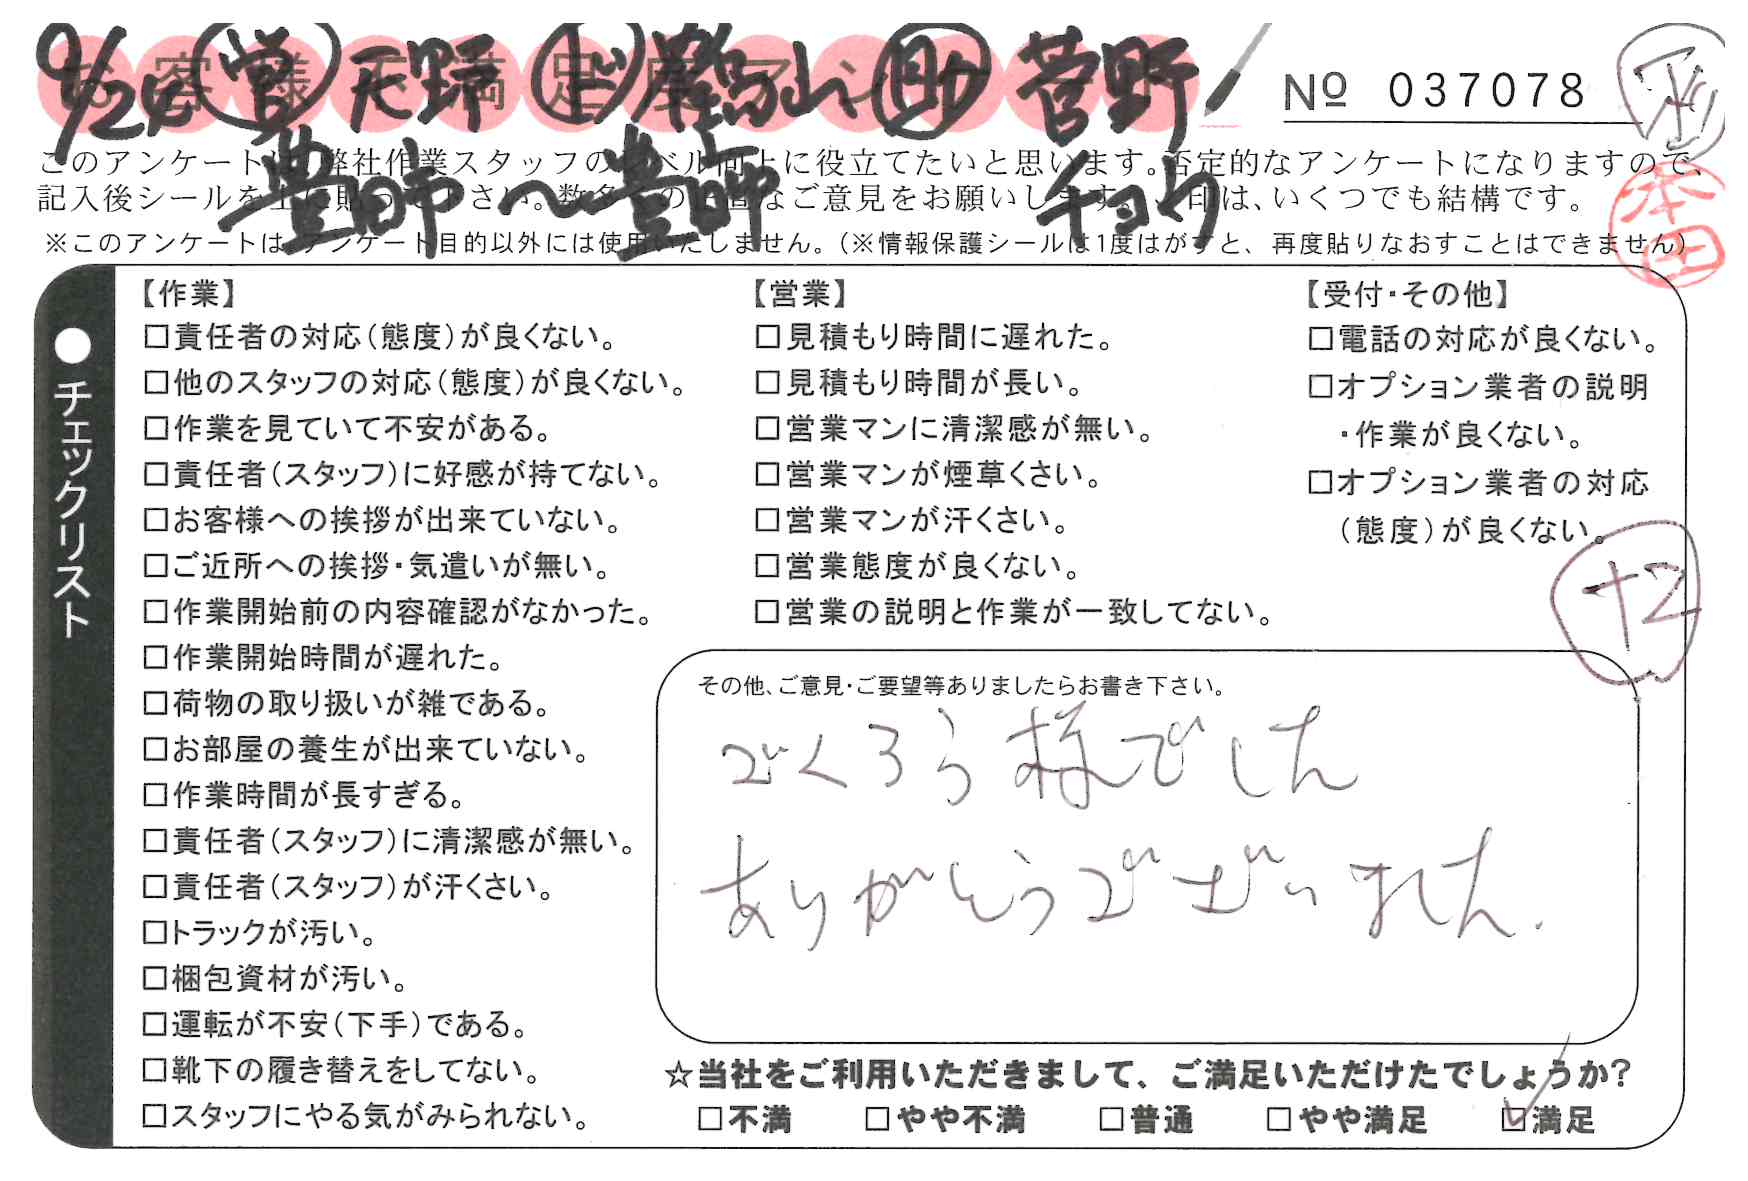 9/24 営 天野 上 嶌山 助 菅野
お客様満足度アン
№ 037078
豊田市〜豊田市 チョウ
このアンケートは、弊社作業スタッフのレベル向上に役立てたいと思います。否定的なアンケートになりますので、
記入後シールを上に貼って下さい。数多くの正直なご意見をお願いします。✓印は、いくつでも結構です。
※このアンケートは、アンケート目的以外には使用いたしません。(※情報保護シールは1度はがすと、再度貼りなおすことはできません)
本田
●チェックリスト
【作業】
□責任者の対応(態度)が良くない。
□他のスタッフの対応(態度)が良くない。
□作業を見ていて不安がある。
□責任者(スタッフ)に好感が持てない。
□お客様への挨拶が出来ていない。
□ご近所への挨拶・気遣いが無い。
□作業開始前の内容確認がなかった。
□作業開始時間が遅れた。
□荷物の取り扱いが雑である。
□お部屋の養生が出来ていない。
□作業時間が長すぎる。
□責任者(スタッフ)に清潔感が無い。
□責任者(スタッフ)が汗くさい。
□トラックが汚い。
□梱包資材が汚い。
□運転が不安(下手)である。
□靴下の履き替えをしてない。
□スタッフにやる気がみられない。
【営業】
□見積もり時間に遅れた。
□見積もり時間が長い。
□営業マンに清潔感が無い。
□営業マンが煙草くさい。
□営業マンが汗くさい。
□営業態度が良くない。
□営業の説明と作業が一致してない。
【受付・その他】
□電話の対応が良くない。
□オプション業者の説明
・作業が良くない。
□オプション業者の対応
(態度)が良くない。
+2
その他、ご意見・ご要望等ありましたらお書き下さい。
ごくろう様でした
ありがとうございました.
☆当社をご利用いただきまして、ご満足いただけたでしょうか?
□不満 □やや不満 □普通 □やや満足 ☑満足